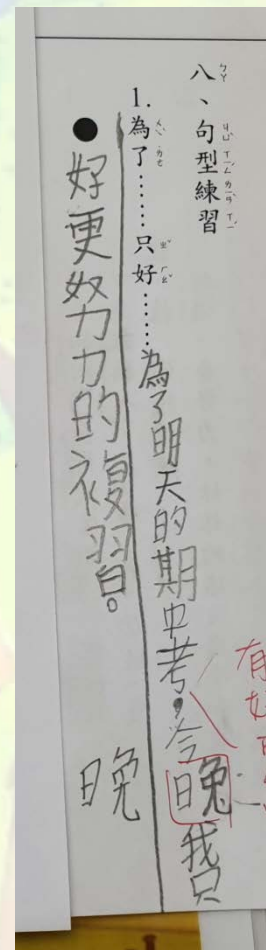 有
八、句型練習
1.為了……只好……為了明天的期中考，今晚我只
●好更努力的複習。
晚